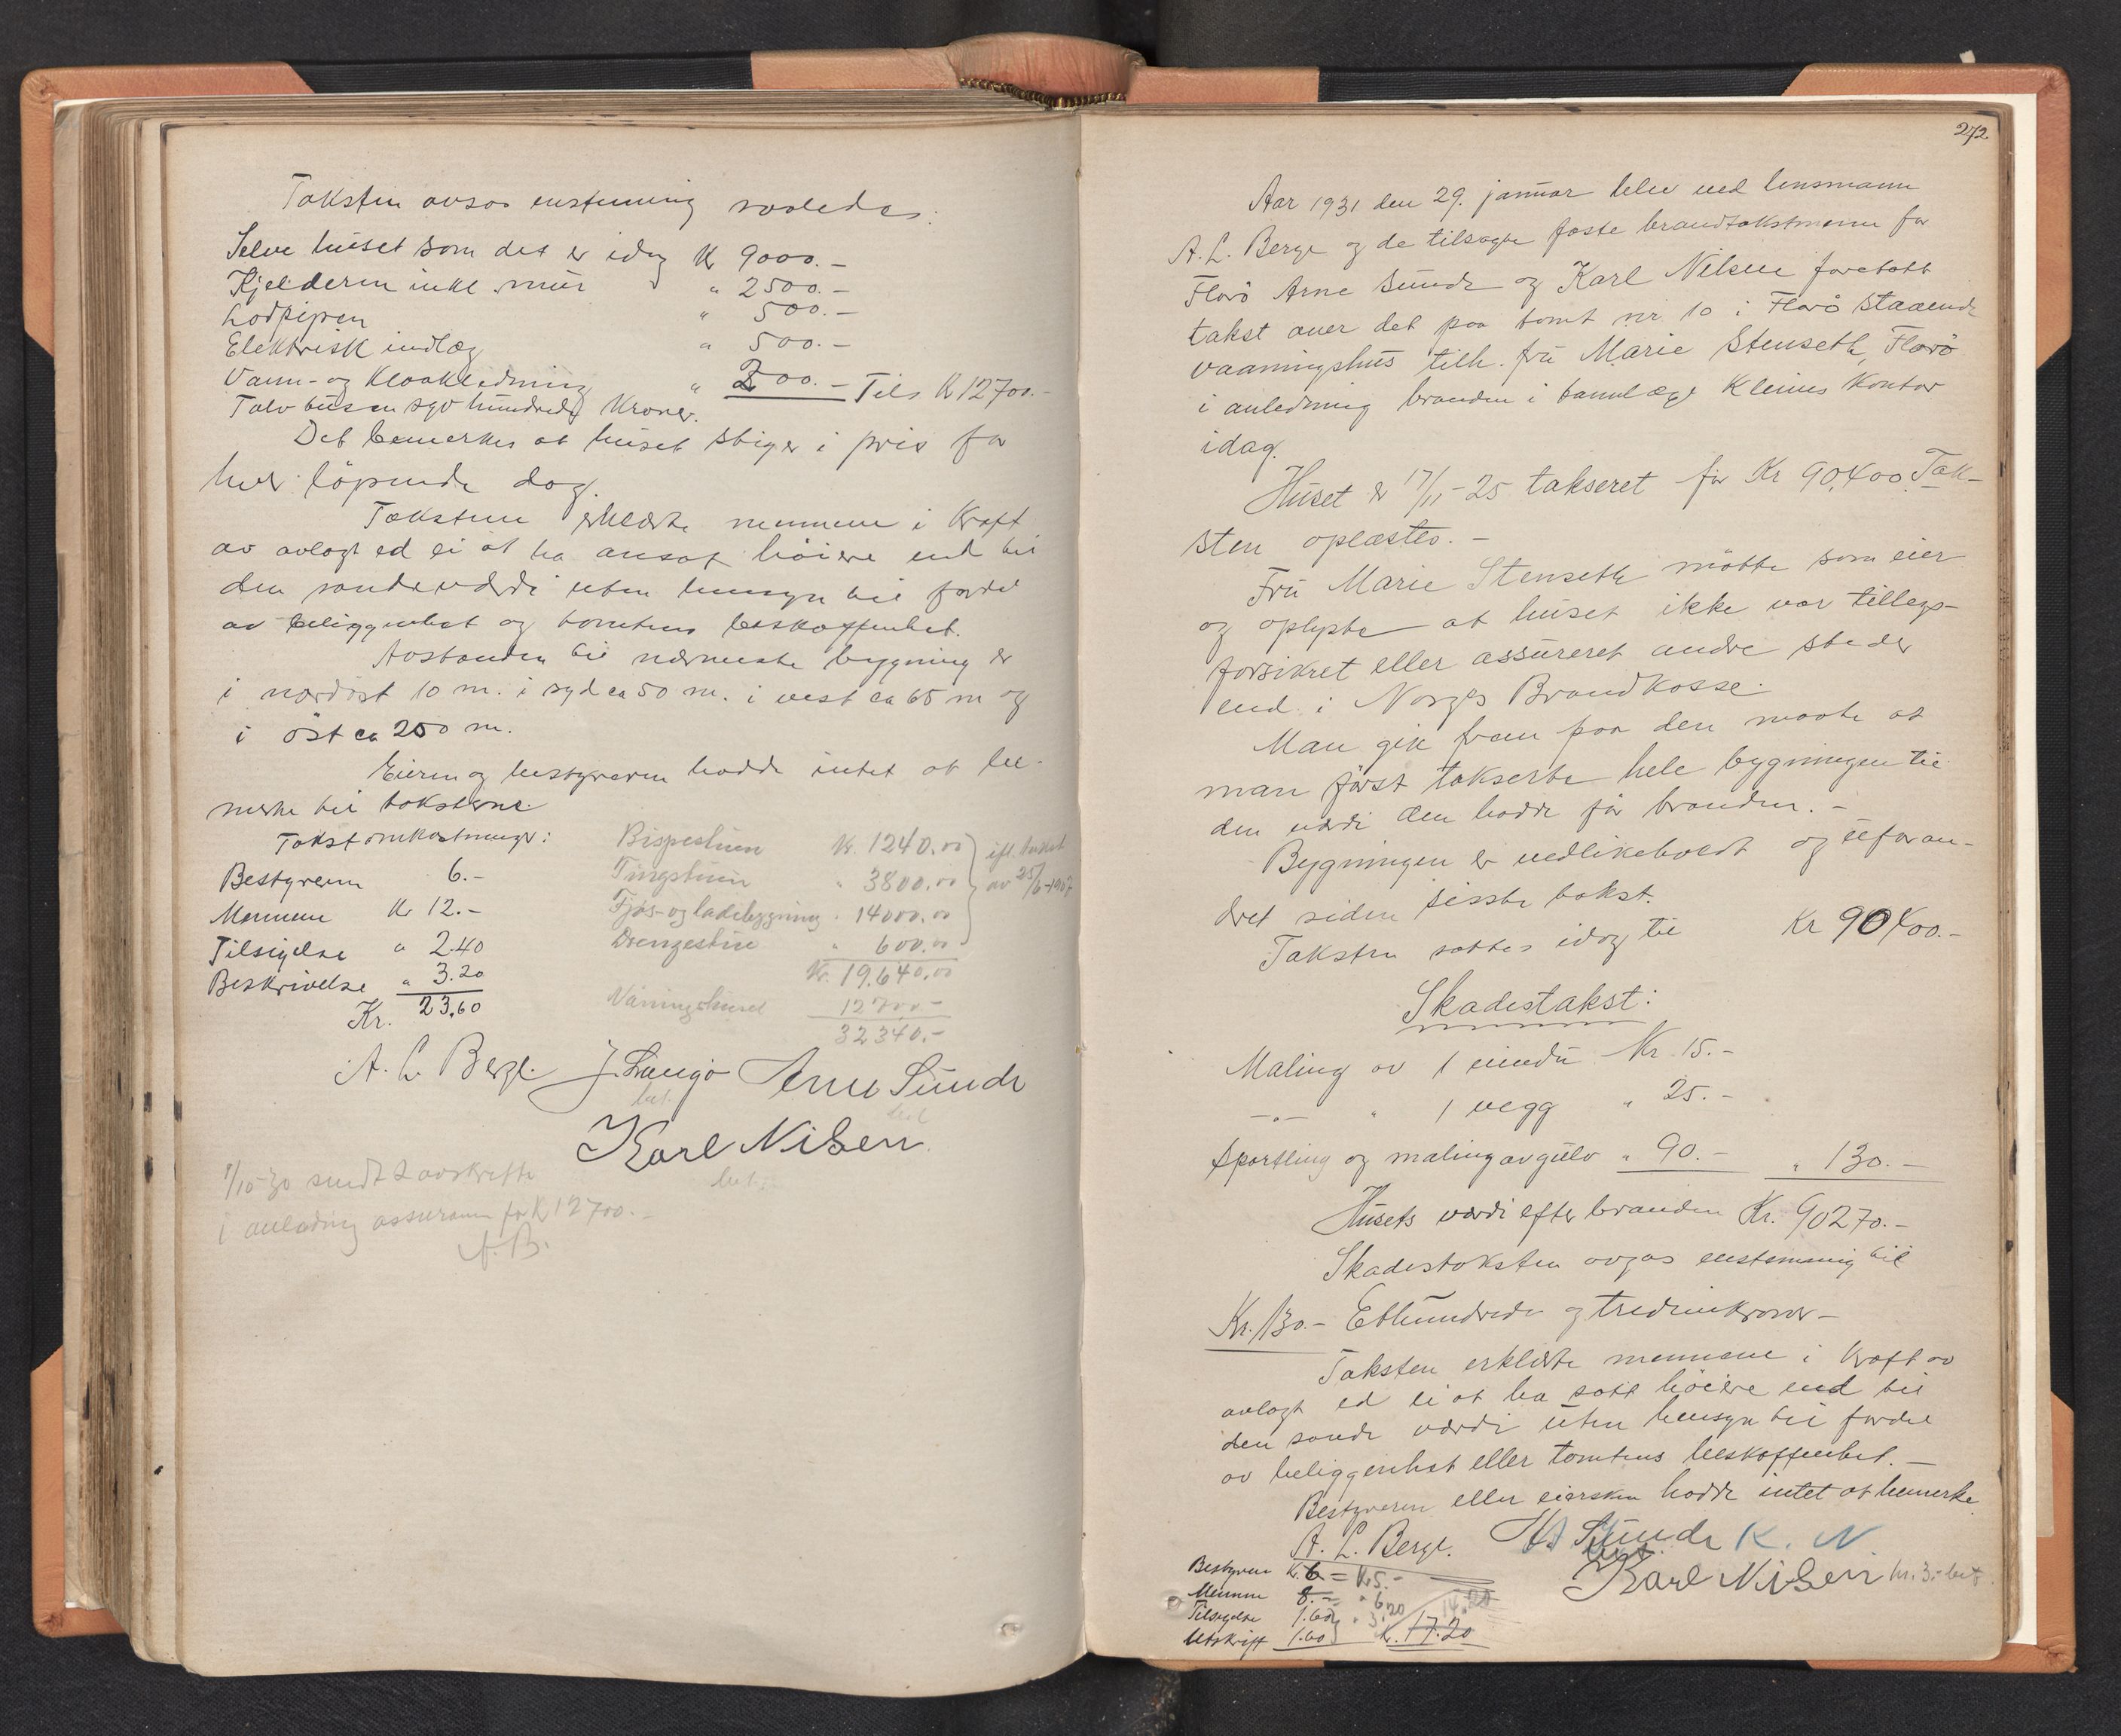 Taksten avgas enstemmig saaledes:
Selve huset som det er idag Kr 9000.-
Kjelderen inkl. mur " 2500.-
Lodpipen " 500.-
Elektrisk indlæg " 500.-
Vann- og Kloakledning " 200.- Tils Kr 12700.-
Tolv tusen syv hundrede Kroner.
Det bemerkes at huset stiger i pris for
hver löpende dag.
Taksten erklærte mennene i Kraft
av avlagt ed ei at ha ansat höiere end til
den sande værdi uten hensyn til fordel
av beliggenhet og tomtens beskaffenhet.
Avstanden til nærmeste bygning er
i nordöst 10 m. i syd ca 50 m. i vest ca 65 m og
i öst ca 200 m.
Eieren og bestyreren hadde intet at be-
merke til taksterne.
Takstomkostninger:
Bestyreren 6.-
Mennene Kr 12.-
Tilsigelse " 2.40
Beskrivelse " 3.20
Kr. 23.60
Bispestuen Kr. 1240.00
Tingstuen " 3800.00
Fjøs- og ladebygning " 14000.00
Drengestue " 600.00
ifl. takst
av 25/6-1907
Kr. 19.640.00
Våningshuset 12700.-
32340.-
A. L. Berge. Arne Sunde
Karl Nilsen
1/10-30 sendt 2 avskrifter
i anledning assuransen for Kr 12700.-
A. B.
272
Aar 1931 den 29. januar blev ved lensmann
A. L. Berge og de tilsagte faste brandtakstmenn for
Florö Arne Sunde og Karl Nilsen foretatt
takst over det paa tomt nr 10 i Florö staaende
vaaningshus tilh. fru Marie Stenseth, Florö
i anledning branden i tannlæge Kleives Kontor
idag.
Huset er 17/11-25 takseret for Kr 90,400. Tak-
sten oplæstes.-
Fru Marie Stenseth mötte som eier
og oplyste at huset ikke var tillegs-
forsikret eller assureret andre steder
end i Norges Brandkasse.
Man gik fram paa den maate at
man först takserte hele bygningen til
den værdi den hadde för branden.-
Bygningen er vedlikeholdt og uforan-
dret siden sisste takst.
Taksten sattes idag til Kr 90400.-
Skadestakst:
Maling av 1 vindu Kr. 15.-
-"- " 1 vegg " 25.-
Sparkling og maling av gulv " 90.- " 130.-
Husets værdi efter branden Kr. 90270.-
Skadestaksten avgas enstemmig til
Kr. 130.- Etthundrede og tredivekroner-
Taksten erklærte mennene i Kraft av
avlagt ed ei at ha satt höiere end til
den sande værdi uten hensyn til fordel
av beliggenhet eller tomtens beskaffenhet.-
Bestyreren eller eiersken hadde intet at bemerke
A. L. Berge. A. Sunde K. N
Karl Nilsen kr. 3.- bet.
Bestyreren Kr. 6 = Kr 5.-
Mennene 8.- " 6.20
Tilsigelse 1.60 " 3.20 14.20
Utskrift 1.60 Kr. 17.20